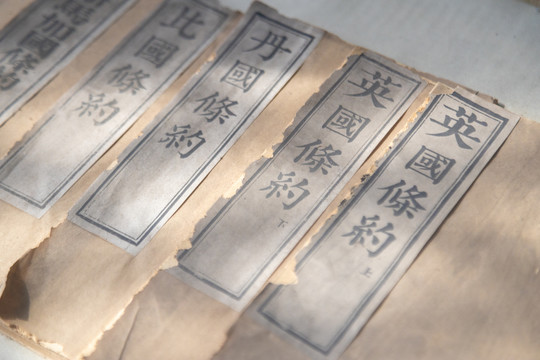 英國條約 上
英國條約 下
丹國條約
比國條約
馬加國條約